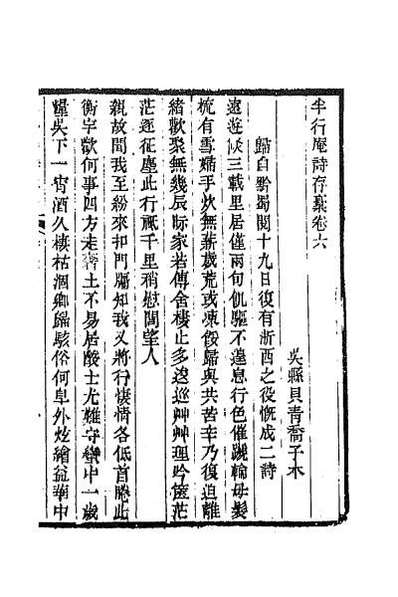 半行庵詩存稾卷六
吳縣貝青喬子木
歸自黔蜀閱十九日復有浙西之役慨成二詩
遠遊候三載里居僅兩旬飢驅不遑息行色催踆輪母髮
梳有雪婦手炊無薪歲荒或凍餒歸與共苦辛乃復迫離
緒歡聚無幾辰际家若傳舍棲止多逡巡艸艸理吟篋茫
茫逐征塵此行祇千里稍慰閭望人
親故聞我至紛來扣門牖知我又將行悽情各低首勝此
衡宇歡何事四方走瘠土不易居酸士尤難守蠻中一歲
糧吳下一宵酒久棲枯涸鄉歸駭俗何阜外炫繪益華中